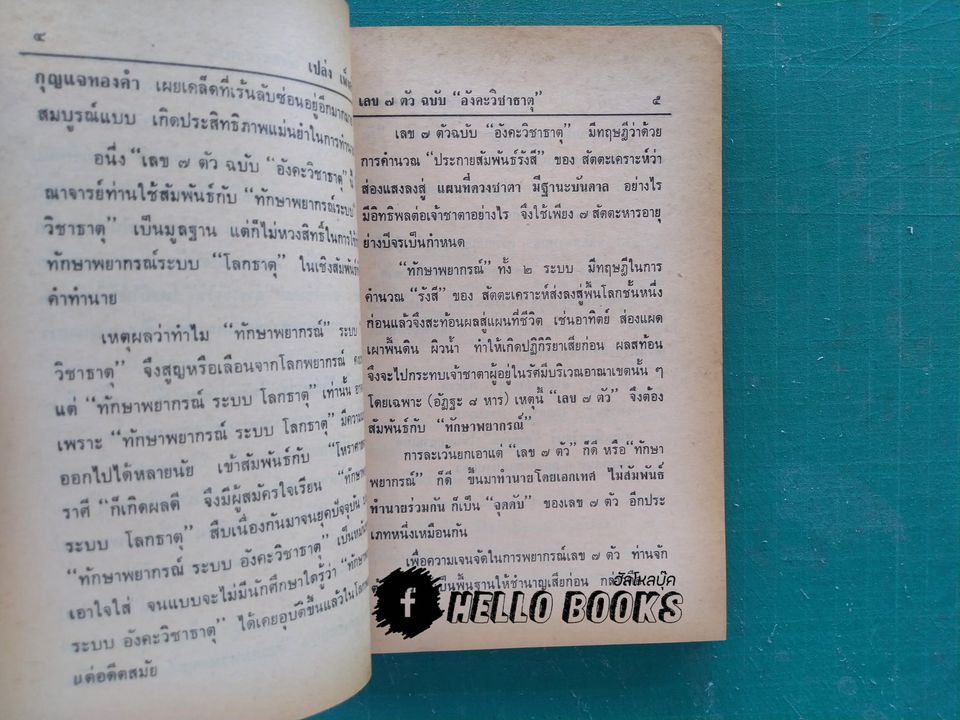 ๔
เปล่ง
กุญแจทองคำ เผยเคล็ดที่เร้นลับซ่อนอยู่อีกมากมาย
สมบูรณ์แบบ เกิดประสิทธิภาพแม่นยำในการทำนาย
อนึ่ง “เลข ๗ ตัว ฉบับ “อังคะวิชาธาตุ”
ณาจารย์ท่านใช้สัมพันธ์กับ “ทักษาพยากรณ์ระบบ
วิชาธาตุ” เป็นมูลฐาน แต่ก็ไม่หวงสิทธิ์ในการใช้
ทักษาพยากรณ์ระบบ “โลกธาตุ” ในเชิงสัมพันธ์
คำทำนาย
เหตุผลว่าทำไม “ทักษาพยากรณ์” ระบบ
วิชาธาตุ” จึงสูญหรือเลือนจากโลกพยากรณ์
แต่ “ทักษาพยากรณ์ ระบบ โลกธาตุ” เท่านั้น
เพราะ “ทักษาพยากรณ์ ระบบ โลกธาตุ” มีความ
ออกไปได้หลายนัย เข้าสัมพันธ์กับ
ราศี “ก็เกิดผลดี จึงมีผู้สมัครใจเรียน
ระบบ โลกธาตุ” สืบเนื่องกันมาจนยุคปัจจุบัน
“ทักษาพยากรณ์ ระบบ อังคะวิชาธาตุ”
เอาใจใส่ จนแบบจะไม่มีนักศึกษาใดรู้ว่า
ระบบ อังคะวิชาธาตุ” ได้เคยอุบัติขึ้นแล้วในโลก
แต่อดีตสมัย
เลข ๗ ตัว ฉบับ “อังคะวิชาธาตุ” ๕
เลข ๗ ตัวฉบับ “อังคะวิชาธาตุ” มีทฤษฎีว่าด้วย
การคำนวณ “ประกายสัมพันธ์รังสี” ของ สัตตะเคราะห์ว่า
ส่องแสงลงสู่ แผนที่ดวงชาตา มีฐานะบันดาล อย่างไร
มีอิทธิพลต่อเจ้าชาตาอย่างไร จึงใช้เพียง ๗ สัตตะหารอายุ
ย่างปีจรเป็นกำหนด
“ทักษาพยากรณ์” ทั้ง ๒ ระบบ มีทฤษฎีในการ
คำนวณ “รังสี” ของ สัตตะเคราะห์ส่งลงสู่พื้นโลกชั้นหนึ่ง
ก่อนแล้วจึงสะท้อนผลสู่แผนที่ชีวิต เช่นอาทิตย์ ส่องแผด
เผาพื้นดิน ผิวน้ำ ทำให้เกิดปฏิกิริยาเสียก่อน ผลสท้อน
จึงจะไปกระทบเจ้าชาตาผู้อยู่ในรัศมีบริเวณอาณาเขตนั้น ๆ
โดยเฉพาะ (อัฏฐะ ๘ หาร) เหตุนี้ “เลข ๗ ตัว” จึงต้อง
สัมพันธ์กับ “ทักษาพยากรณ์”
การละเว้นยกเอาแต่ “เลข ๗ ตัว” ก็ดี หรือ “ทักษา
พยากรณ์” ก็ดี ขึ้นมาทำนายโดยเอกเทศ ไม่สัมพันธ์
ทำนายร่วมกัน ก็เป็น “จุดดับ” ของเลข ๗ ตัว อีกประ
เภทหนึ่งเหมือนกัน
เพื่อความเจนจัดในการพยากรณ์เลข ๗ ตัว ท่านจัก
เป็นพื้นฐานให้ชำนาญเสียก่อน
ฮัลโหลบุ๊ค
f HELLO BOOKS